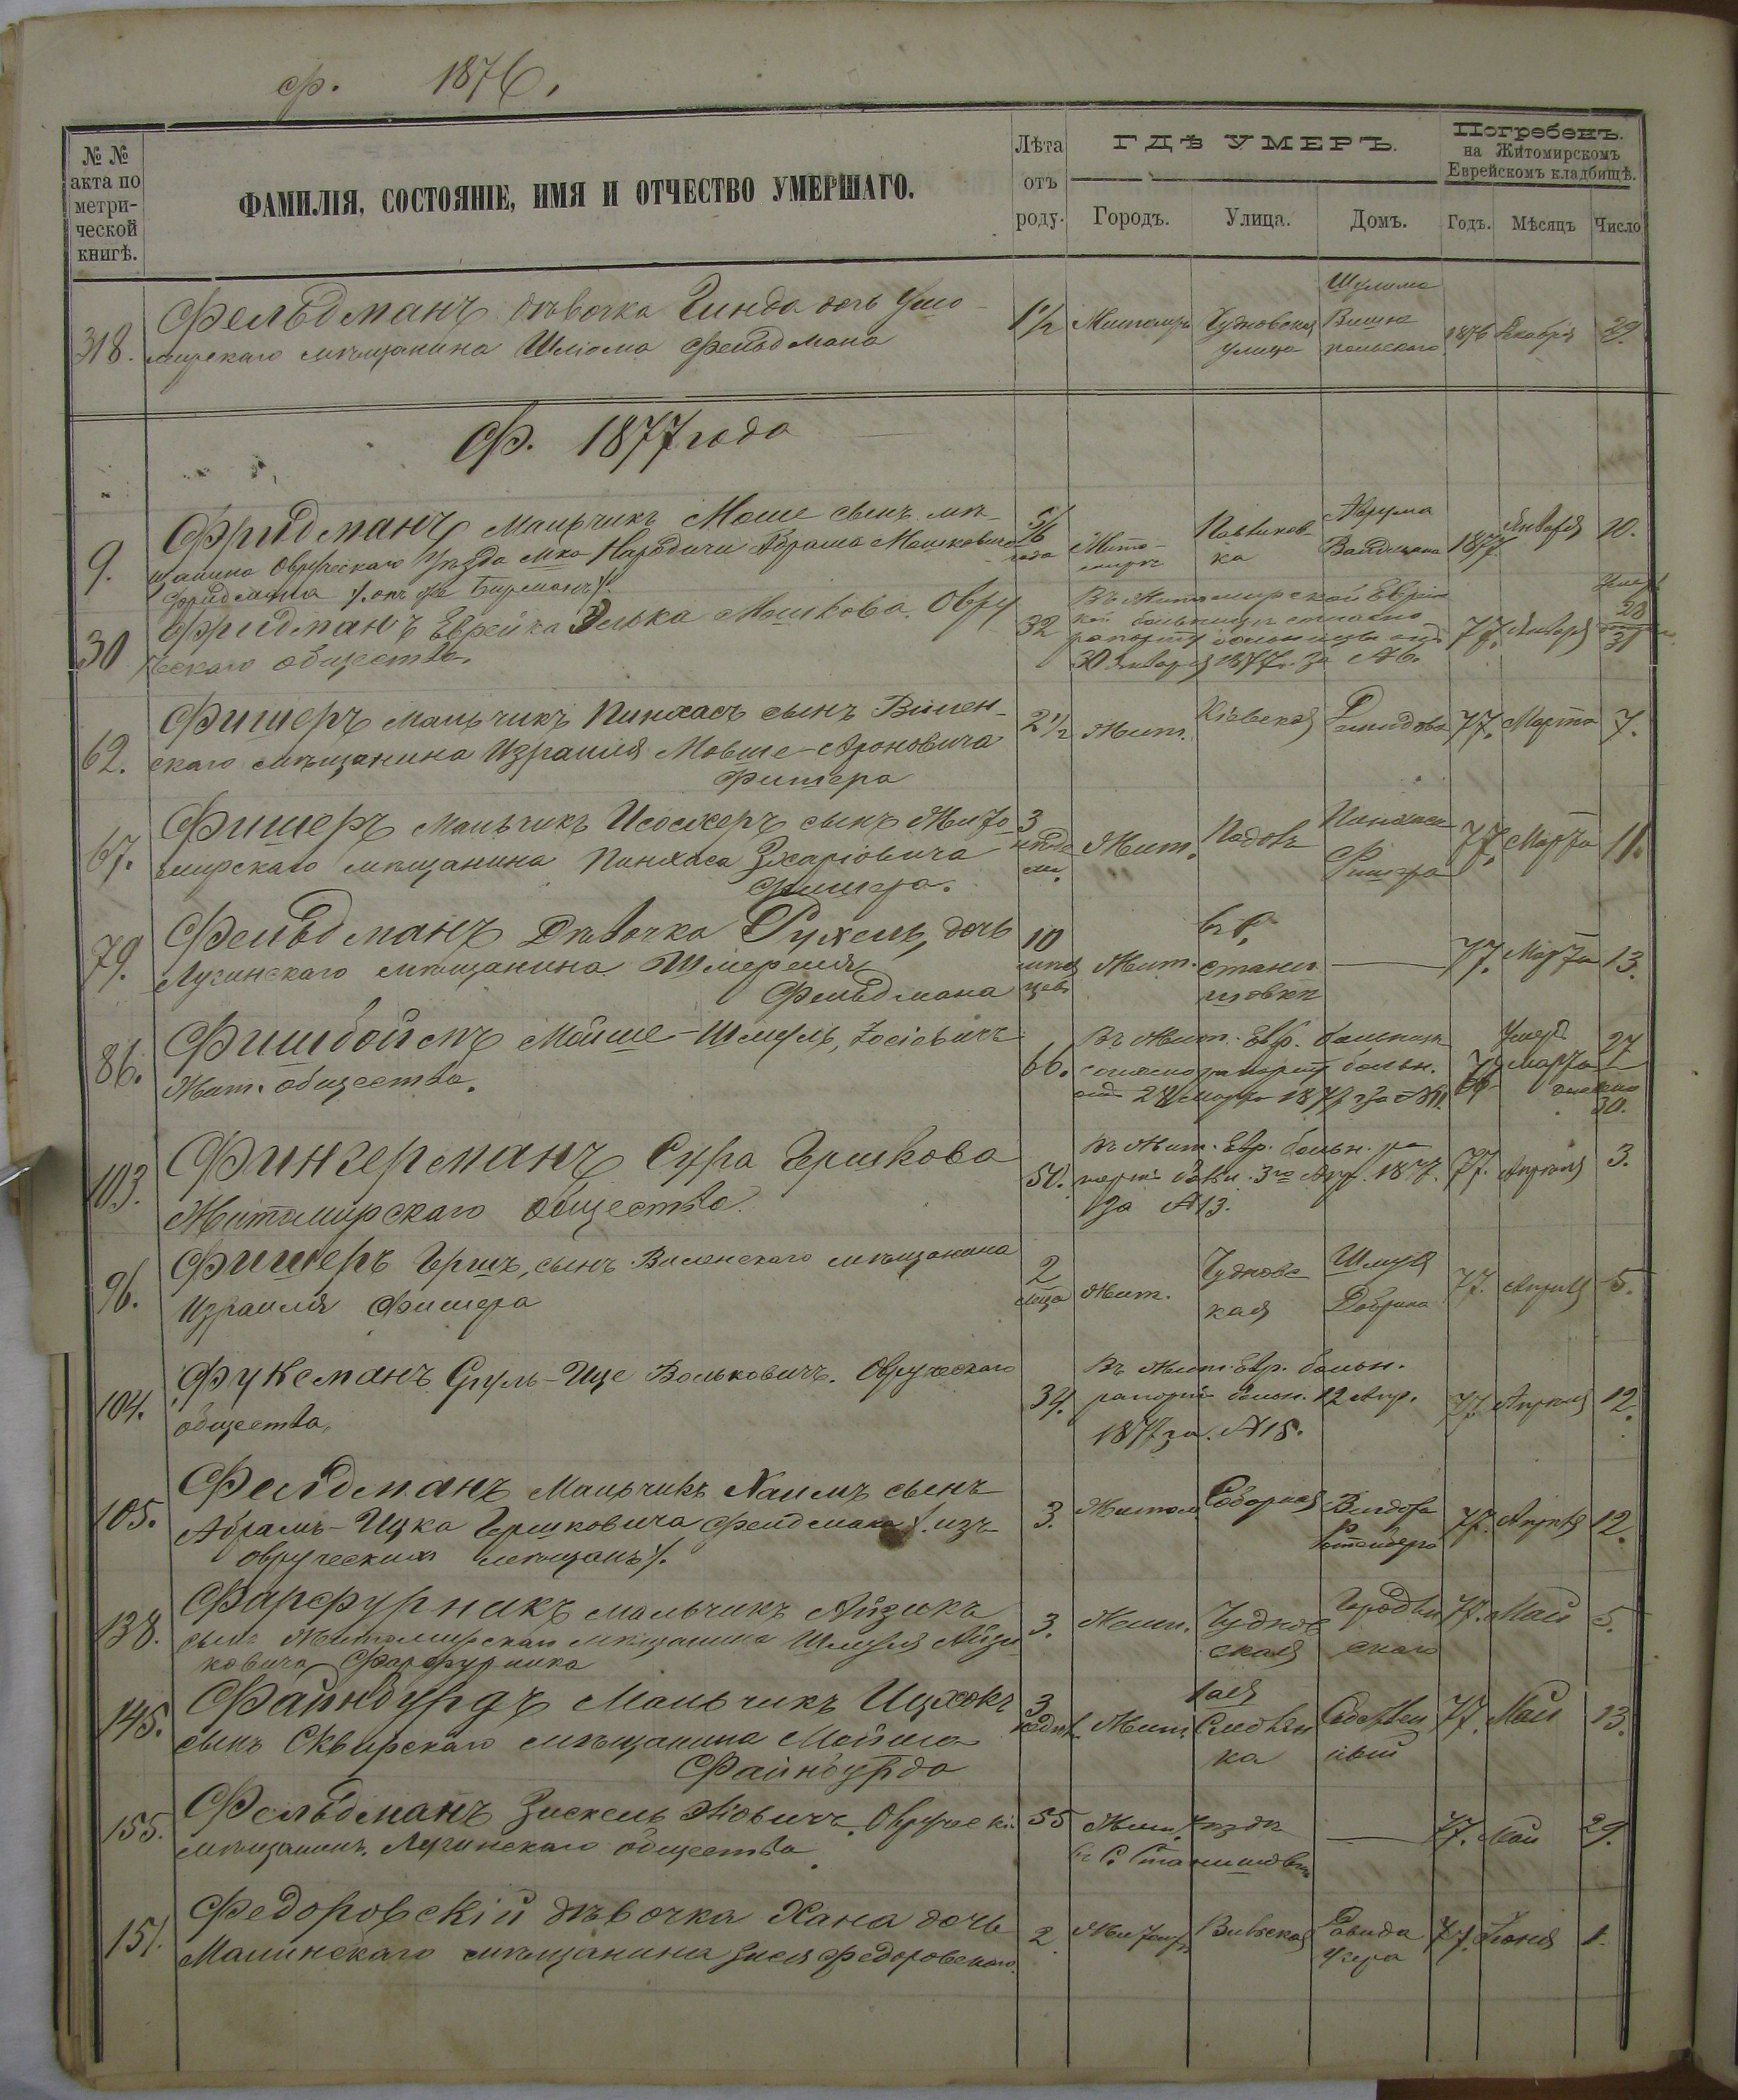 Ф. 1876.
№ №
акта по
метри-
ческой
книгѣ.
ФАМИЛІЯ, СОСТОЯНІЕ, ИМЯ И ОТЧЕСТВО УМЕРШАГО.
Лѣта
отъ
роду.
ГДѢ УМЕРЪ.
Городъ.
Улица.
Домъ.
Погребенъ.
на Житомирскомъ
Еврейскомъ кладбищѣ.
Годъ.
Мѣсяцъ
Число
318.
Фельдманъ дѣвочка Гинда дочь Жито-
мирскаго мѣщанина Шліома Фельдмана
1½
Житомиръ
Чудновская
улица
Шулима
Вишне
польскаго
1876
Декабря
29.
Ф. 1877 года
9.
Фридманъ мальчикъ Моше сынъ мѣ-
щанина Овручскаго уѣзда м-ка Народичи Абрама Мошковича
Фридмана /. онъ же Бирманъ /.
5/6
года
Жито-
миръ
Павликов-
ка
Аврума
Вайдмана
1877
Января
10.
30
Фридманъ Еврейка Элька Мошкова Овру
ческаго общества.
32
Въ Житомирской Еврейс
кой больницѣ согласно
рапорту больницы отъ
30 Января 1877 г. за №6.
77.
Января
31
62.
Фишеръ мальчикъ Пинхасъ сынъ Вилен-
скаго мѣщанина Израиля Мовше-Ароновича
Фишера
2½
Жит.
Кіевская
Демидова
77.
Марта
7.
67.
Фишеръ мальчикъ Исосхеръ сынъ Жито
мирскаго мѣщанина Пинхаса Зхаріовича
Фишера.
3
недѣ
ли.
Жит.
Подолъ
Пинхаса
Фишера
77.
Марта
11.
79.
Фельдманъ Дѣвочка Рухель, дочь
Лугинскаго мѣщанина Шмереля
Фельдмана
10
мѣся
цевъ
Жит.
въ с.
стани
шовки
77.
Марта
13.
86.
Фишбоймъ Мойше-Шмуль, Іосіовичъ
Жит. общества.
66.
Въ Жит. Евр. больницѣ
согласно рапорту больн.
отъ 28 Марта 1877 г за №11.
Умеръ
Марта
27
30.
103.
Фингерманъ Сура Гершкова
Житомирскаго общества.
50.
Въ Жит. Евр. больн. ра
портъ больн. 3го Апр. 1877.
за №13.
77.
Апрѣля
3.
96.
Фишеръ Гершъ, сынъ Виленскаго мѣщанина
Израиля Фишера
2
м-ца
Жит.
Чудновс
кая
Шмуля
Добрина
77.
Апрѣля
5.
104.
Фуксманъ Сруль-Ице Вольковичъ. Овручскаго
общества,
34.
Въ Жит. Евр. больн.
рапортъ больн. 12 Апр.
1877 за. №15.
77
Апрѣля
12.
105.
Фельдманъ Мальчикъ Хаимъ сынъ
Абрамъ-Ицка Гершковича Фельдмана /. изъ
овруческихъ мѣщанъ /.
3.
Житом
Соборная
77.
Апрѣля
12.
138.
Фарфурникъ мальчикъ Айзикъ
сынъ Житомирскаго мѣщанина Шмуля Айзи
ковича Фарфурника
3.
Жит.
Чуднов
ская
скаго
77.
Май
5.
145.
Файнбурдъ Мальчикъ Ицхокъ
сынъ Сквирскаго мѣщанина Мойше
Файнбурда
3
Жит.
ка
77.
Май
13.
155.
Фельдманъ Зискель Овручскі
мѣщанинъ. Лугинскаго общества.
55
Жит. уѣзда
въ с. Станишовки
77.
Май
29.
151.
Федоровскій дѣвочка Хана дочь
Малинскаго мѣщанина Зися Федоровскаго.
2.
Житомъ
Вильская
Давида
77.
Іюня
1.